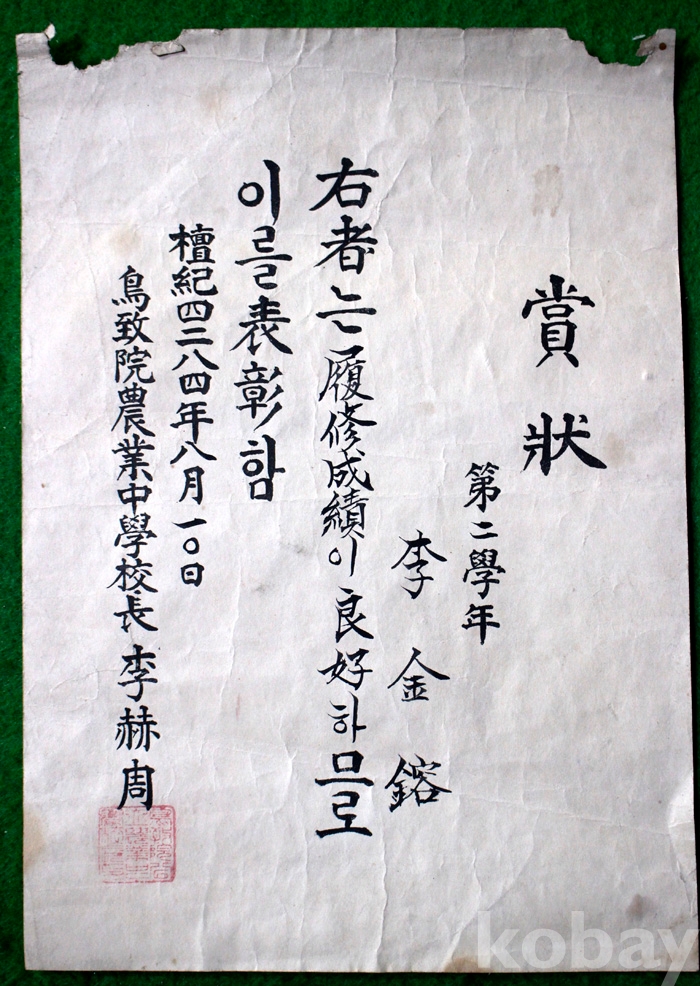 賞狀
第二學年
李金鎔
右者는履修成績이良好하므로
이를表彰함
檀紀四二八四年八月一〇日
鳥致院農業中學校長 李赫周
kobay